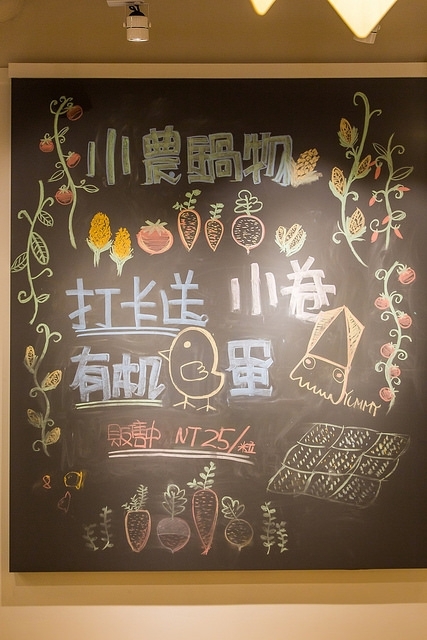 小農鍋物
打卡送 小卷
有机 蛋
YUMMY
販售中 NT25/粒